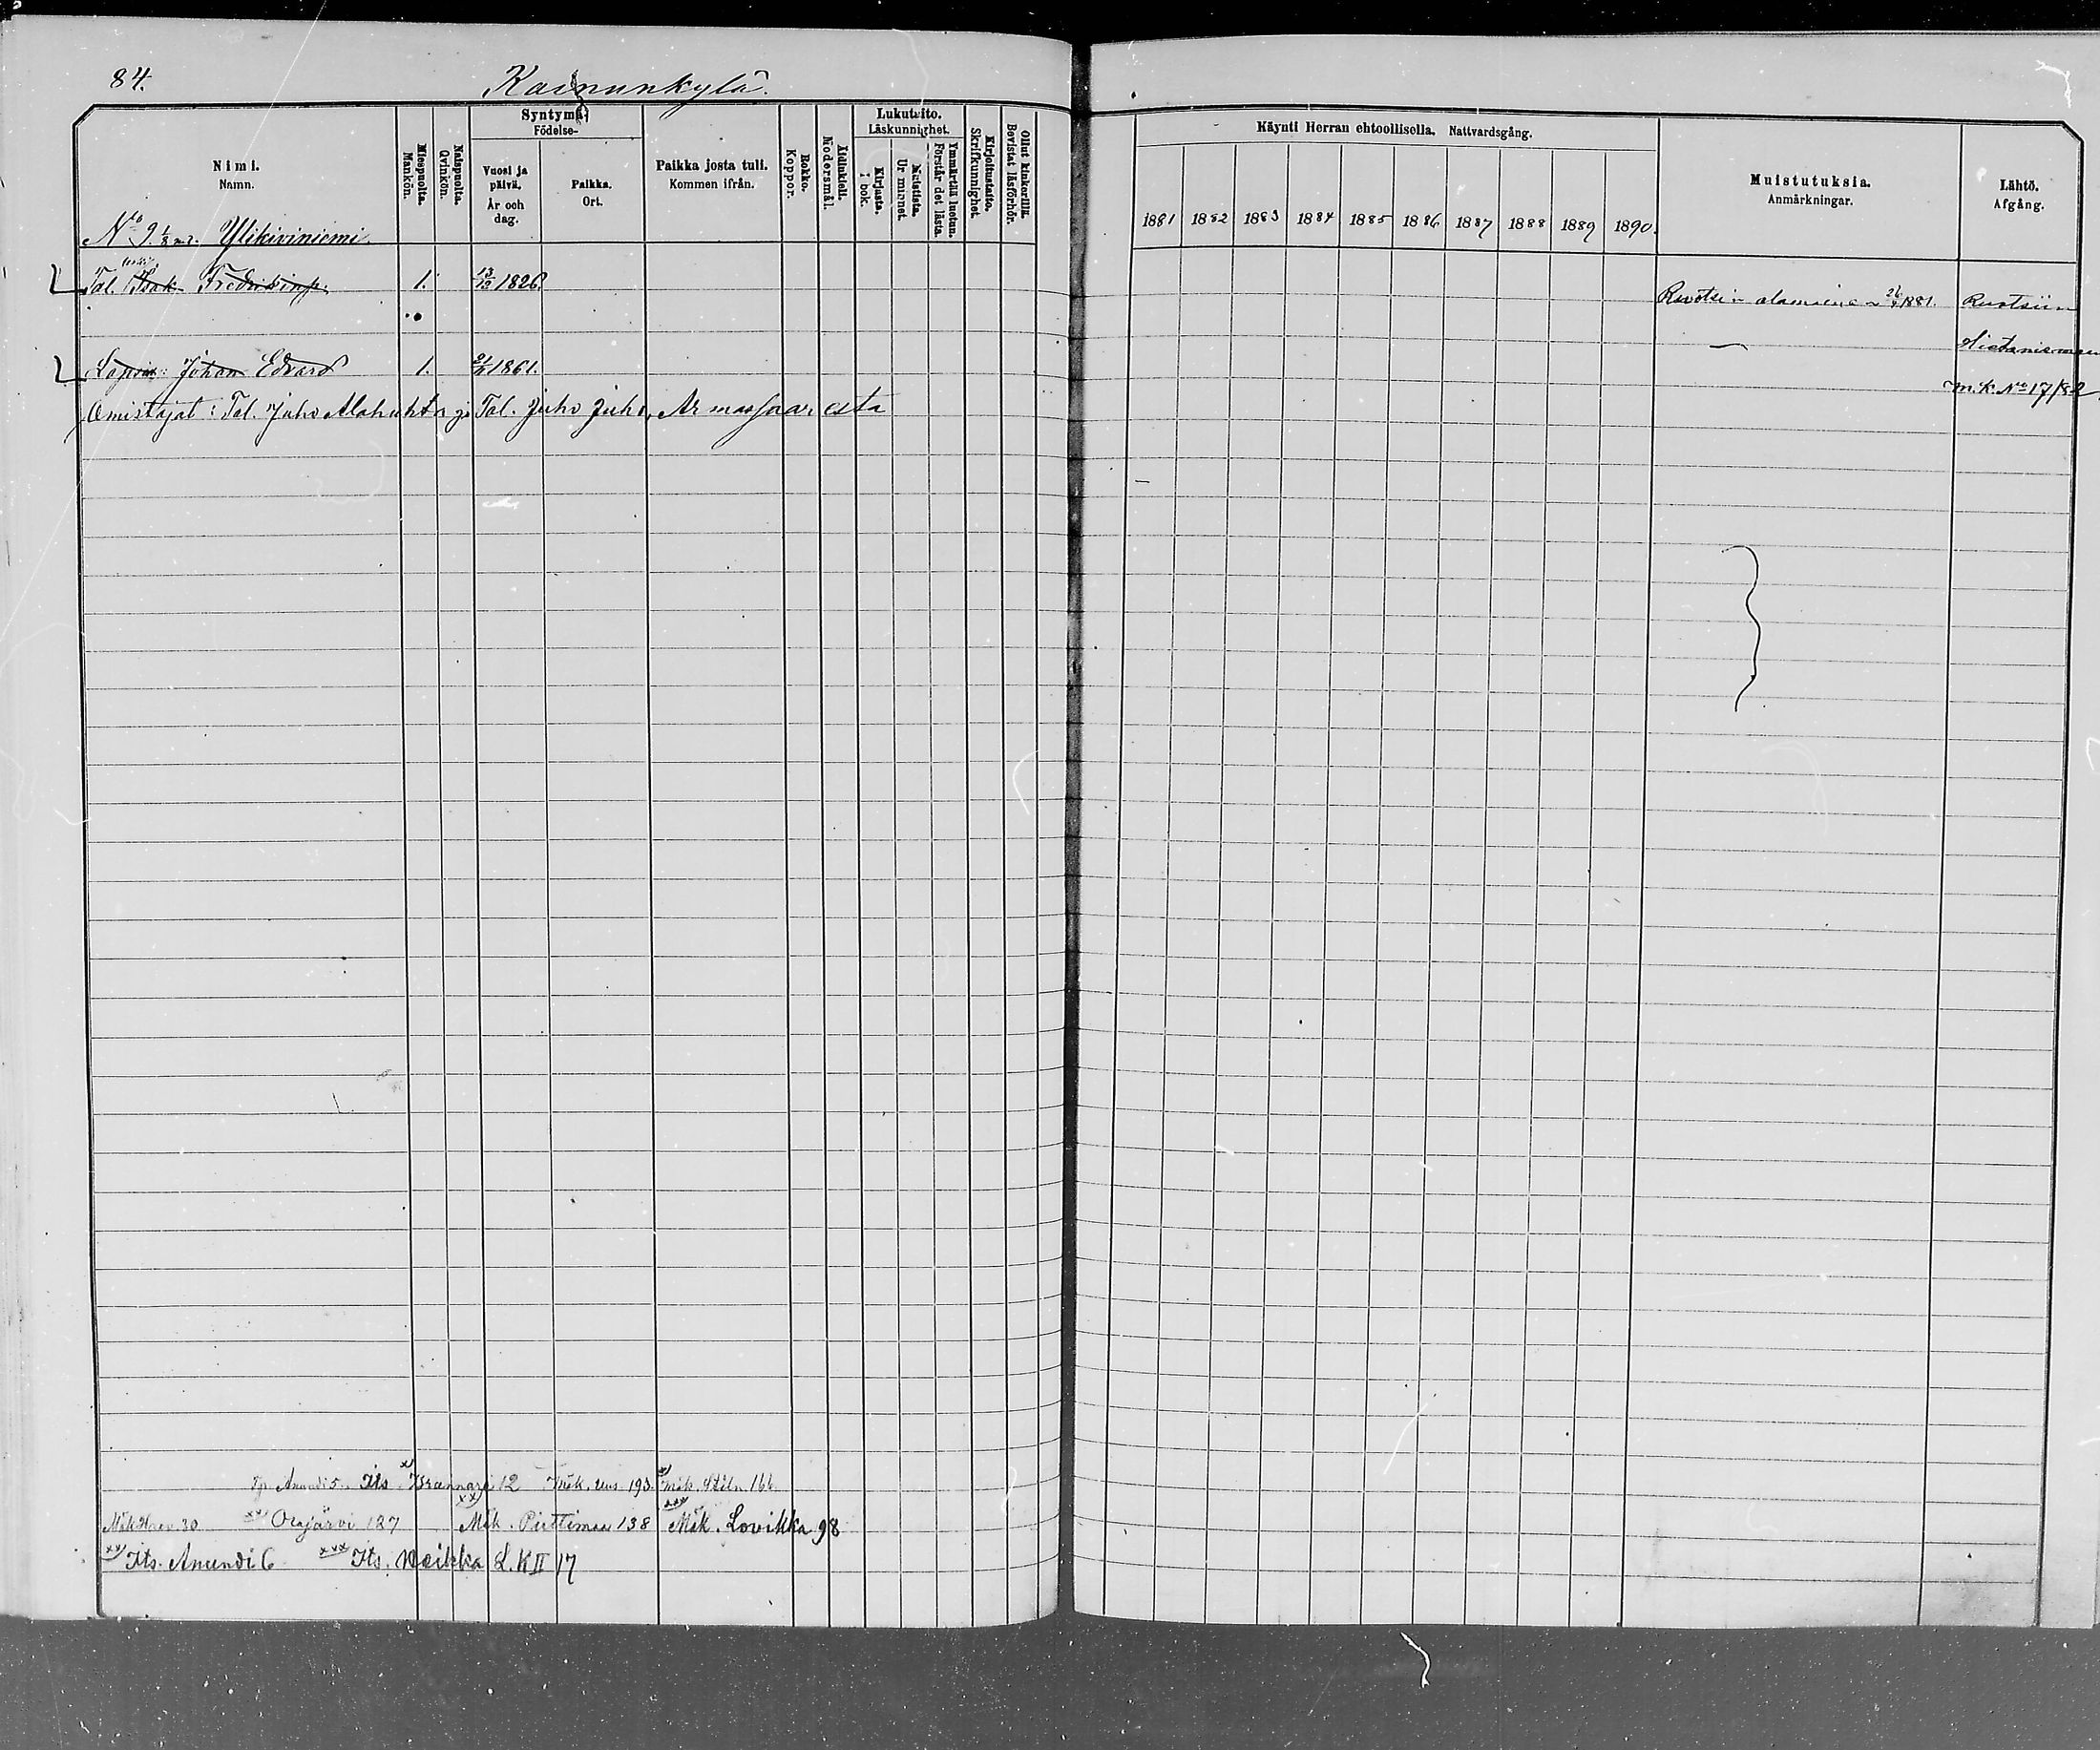 84.
Kainunkylä.
Nimi.
Namn.
Miespuolta.
Mankön.
Naispuolta.
Qvinkön.
Syntymä-
Födelse-
Vuosi ja päivä.
År och dag.
Paikka.
Ort.
Paikka josta tuli.
Kommen ifrån.
Rokko.
Koppor.
Äidinkieli.
Modersmål.
Lukutaito.
Läskunnighet.
Kirjasta.
I bok.
Muistista.
Ur minnet.
Ymmärtää luetun.
Förstår det lästa.
Kirjoitustaito.
Skrifkunnighet.
Ollut kinkerillä.
Bevistat läsförhör.
Käynti Herran ehtoollisella. Nattvardsgång.
1881 1882 1883 1884 1885 1886 1887 1888 1889 1890.
Muistutuksia.
Anmärkningar.
Lähtö.
Afgång.
No 9. 1/8 m. Ylikiviniemi.
Tal. Isak Fredrikinp. 1. 13/12 1826. Ruotsin alamainen 1881. Ruotsiin
Hietaniemen
Johan Edvard 1. 1861. m.k. No 17/82
Omistajat: Tal. Juho Alahuhta ja Tal. Juho Juho, Armassaaresta
Anundi 5. Its. Brännare 12 Mök. 193. Mök. 166.
Mök. 30 Orajärvi 127 Mök. Piittimaa 138 Mök. Lovikka 98
Its. Anundi 6 Its. Veikka L.K II 17